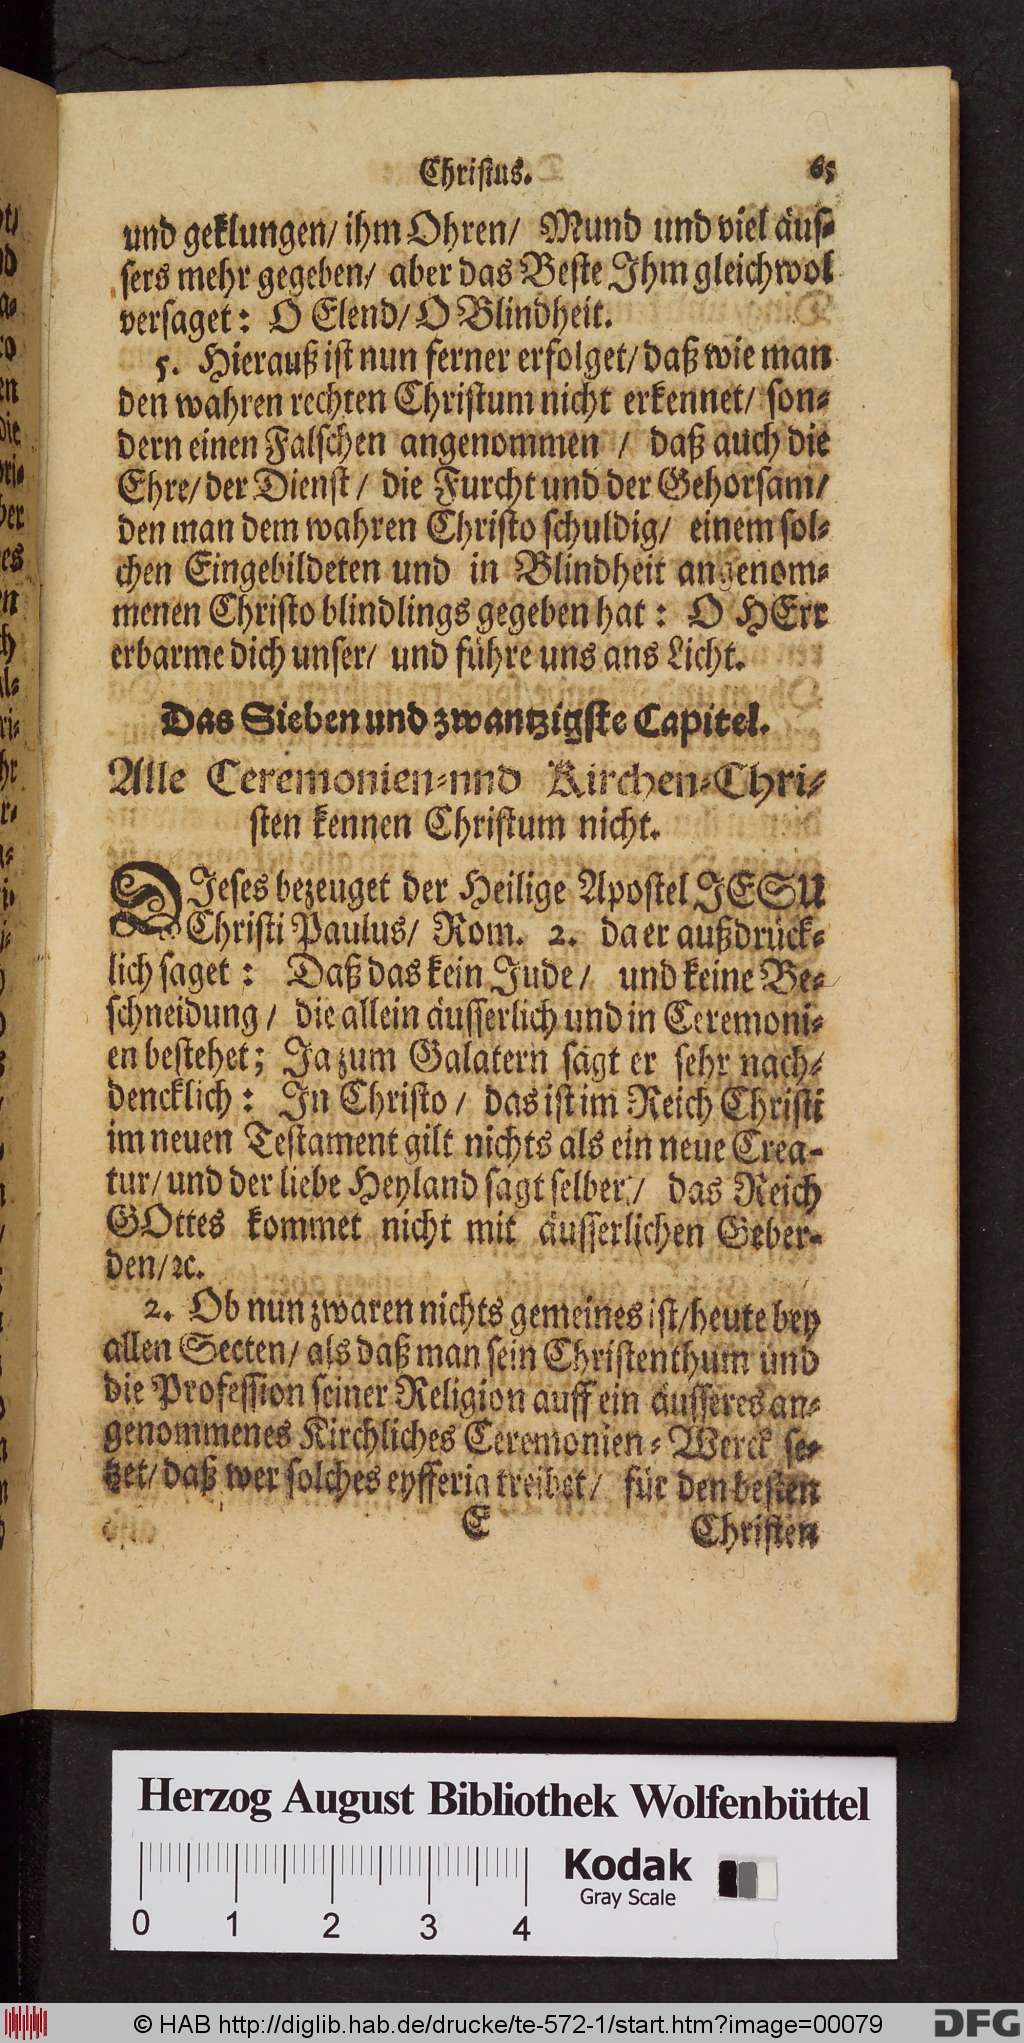 Christus. 65
und geklungen/ ihm Ohren/ Mund und viel äus-
sers mehr gegeben/ aber das Beste Ihm gleichwol
versaget: O Elend/ O Blindheit.
5. Hierauß ist nun ferner erfolget/ daß wie man
den wahren rechten Christum nicht erkennet/ son-
dern einen Falschen angenommen / daß auch die
Ehre/ der Dienst / die Furcht und der Gehorsam/
den man dem wahren Christo schuldig/ einem sol-
chen Eingebildeten und in Blindheit angenom-
menen Christo blindlings gegeben hat: O HErr
erbarme dich unser/ und führe uns ans Licht.
Das Sieben und zwantzigste Capitel.
Alle Ceremonien-nnd Kirchen-Chri-
sten kennen Christum nicht.
DJeses bezeuget der Heilige Apostel JESU
Christi Paulus/ Rom. 2. da er außdrück-
lich saget: Daß das kein Jude / und keine Be-
schneidung / die allein äusserlich und in Ceremoni-
en bestehet; Ja zum Galatern sagt er sehr nach-
dencklich: In Christo / das ist im Reich Christi
im neuen Testament gilt nichts als ein neue Crea-
tur/ und der liebe Heyland sagt selber:/ das Reich
GOttes kommet nicht mit äusserlichen Geber-
den/ ꝛc.
2. Ob nun zwaren nichts gemeines ist/ heute bey
allen Secten/ als daß man sein Christenthum und
die Profession seiner Religion auff ein äusseres an-
genommenes Kirchliches Ceremonien-Werck se-
tzet/ daß wer solches eyfferig treibet/ für den besten
E Christen
Herzog August Bibliothek Wolfenbüttel
Kodak
Gray Scale
0 1 2 3 4
© HAB http://diglib.hab.de/drucke/te-572-1/start.htm?image=00079
DFG